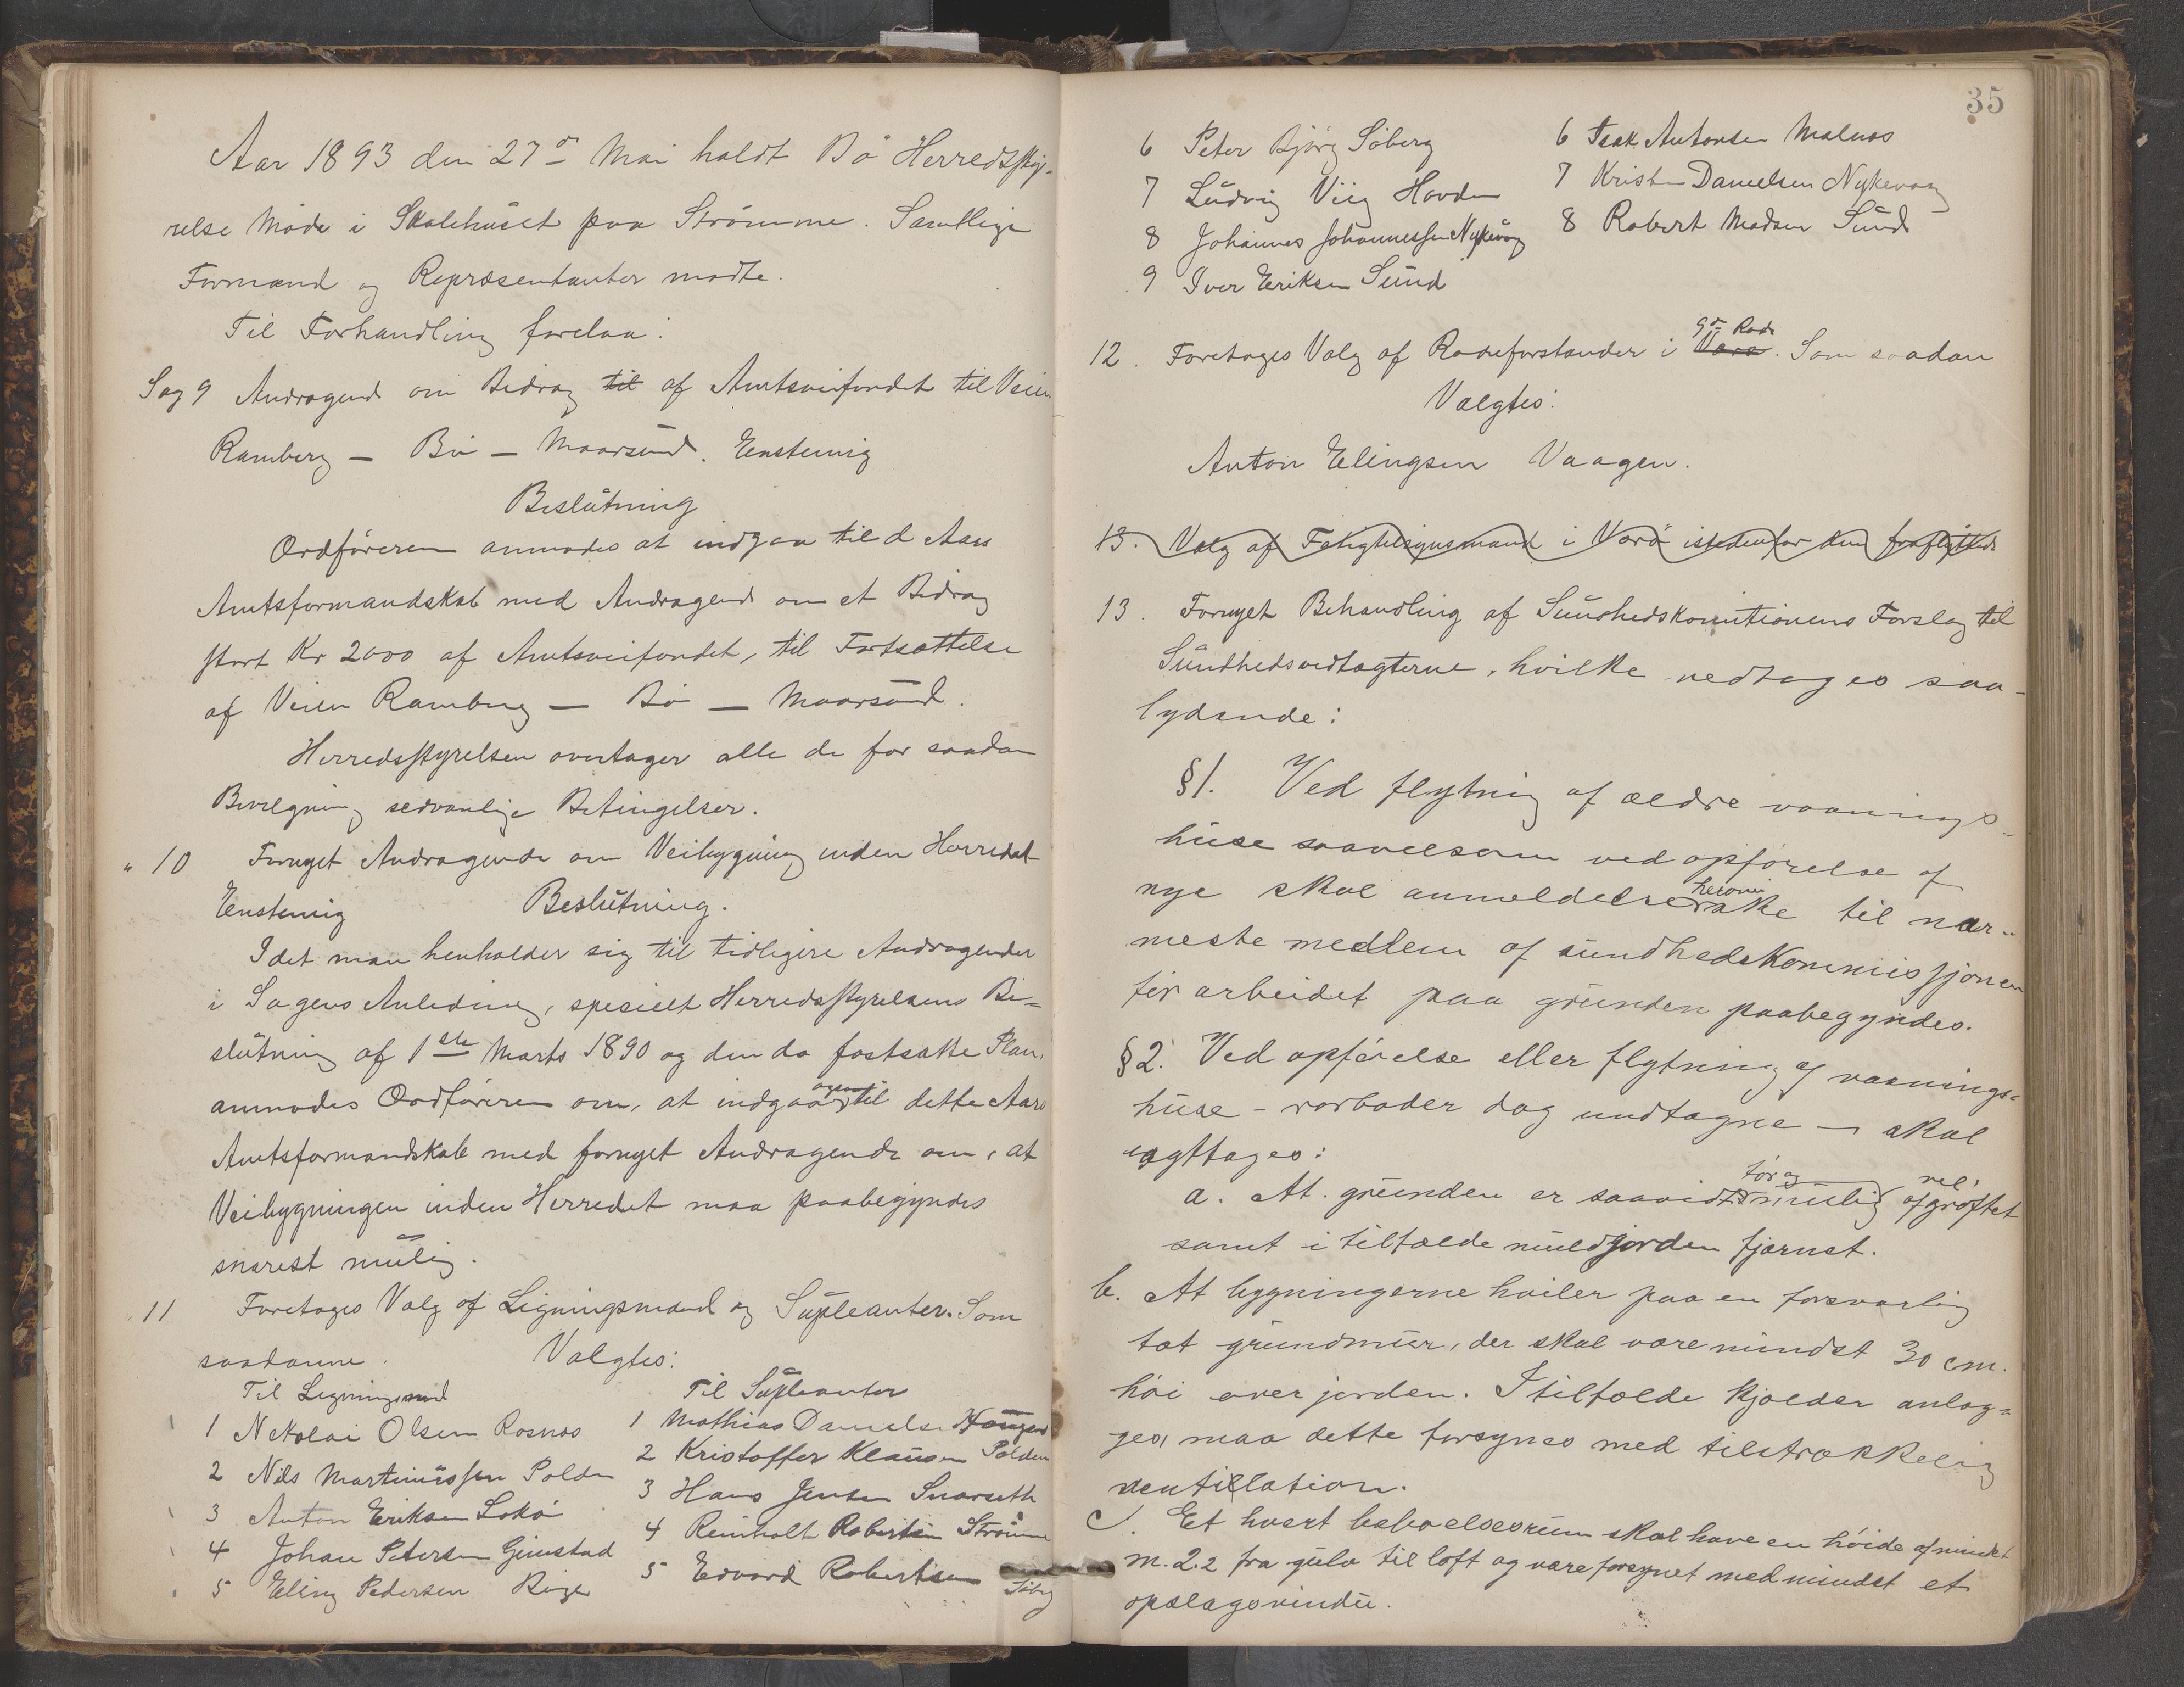 Aar 1893 den 27de Mai holdt Bö Herredssty-
relse Möde i Skolehuset paa Strömme. Samtlige
Formænd og Repræsentanter mödte.
Til Forhandling forelaa:
Sag 9 Andragende om Bidrag til af Amtsveifondet til Veien
Ramberg — Bö — Maarsund. Enstemig
Beslutning
Ordföreren anmodes at indgaa til d Aars
Amtsformandskab med Andragende om et Bidrag
stort Kr 2000 af Amtsveifondet, til Fortsættelse
af Veien Ramberg — Bö — Maarsund.
Herredsstyrelsen overtager alle de for saadan
Bevilgning sedvanlige Betingelser.
" 10 Fornyet Andragende om Veibygning inden Herredet
Enstemig Beslutning.
Idet man henholder sig til tidligere Andragender
i Sagens Anledning, specielt Herredsstyrelsens Be=
slutning af 1ste Marts 1890 og den da fastsatte Plan,
anmodes Ordföreren om, at indgaa igjen til dette Aars
Amtsformandskab med fornyet Andragende om, at
Veibygningen inden Herredet maa paabegyndes
snarest mulig.
" 11 Foretages Valg af Ligningsmænd og Supleanter. Som
saadanne Valgtes:
Til Ligningsmænd Til Supleanter
1 Nekolai Olsen Rosnæs 1 Mathias Danielsen Haugen
2 Nils Martinussen Polden 2 Kristoffer Klausen Polden
3 Anton Eriksen Sokö 3 Hans Jensen Snarseth
4 Johan Petersen Gimstad 4 Reinholt Robertsen Strömme
5 Eling Pedersen Ringe 5 Edvard Robertsen Söberg
35
6 Peter Björg Söberg 6 Isak Antonsen Malnæs
7 Ludvig Viig Hovden 7 Kristen Danielsen Nykevaag
8 Johannes Johannessen Nykvaag 8 Robert Madsen Sund
9 Iver Eriksen Sund
12. Foretages Valg af Rodeforstander i Værø 9de Rode. Som saadan
Valgtes:
Anton Elingsen Vaagen.
13. Valg af Fatigtilsynsmand i Værö istedenfor den fraflyttede
13. Fornyet Behandling af Sundhedskomitionens Forslag til
Sundhedsvedtægterne, hvilke vedtages saa-
lydende:
§1. Ved flytning af ældre vaanings-
huse saavelsom ved opförelse af
nye skal anmeldelse herom ske til nær-
meste medlem af sundhedskommissjonen
för arbeidet paa grunden paabegyndes.
§2. Ved opförelse eller flytning af vaanings-
huse - rorboder dog undtagne — skal
iagttages:
a. At grunden er saavidt mulig tör og vel afgröftet
samt i tilfælde muldjorden fjernet.
b. At bygningerne hviler paa en forsvarlig
tæt grundmur, der skal være mindst 30 cm.
höi over jorden. I tilfælde kjælder anlæg-
ges, maa dette forsynes med tilstrækkelig
ventilation.
c. Et hvert beboelsesrum skal have en höide af mindst
m. 2.2 fra gulv til loft og være forsynet med mindst et
opslagsvindu.